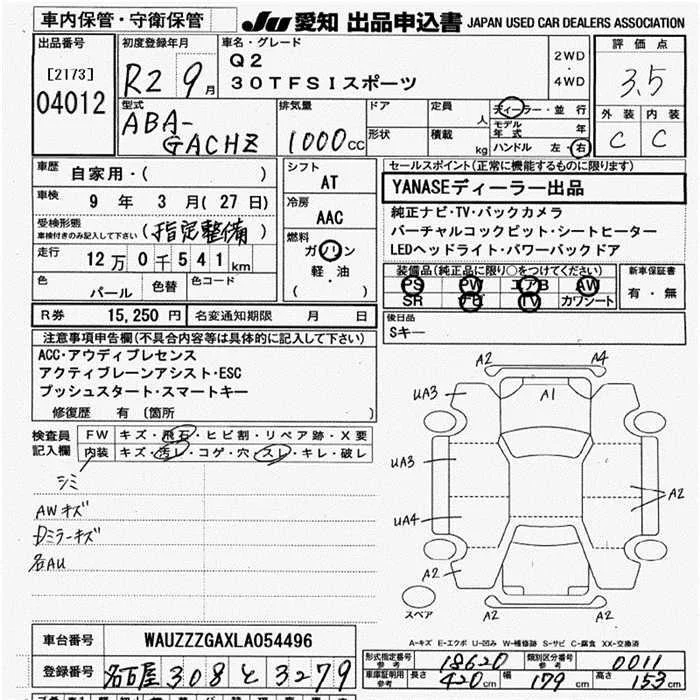 車内保管・守衛保管 JU 愛知 出品申込書 JAPAN USED CAR DEALERS ASSOCIATION
出品番号 初度登録年月 車名・グレード 2WD・4WD 評価点
[2173] R2 9月 Q2 3.5
04012 30TFSIスポーツ
型式 排気量 ドア 定員 人 ディーラー・並行 外装 内装
ABA- 1000cc 形状 積載 kg モデル年式 年 C C
GACHZ ハンドル 左・右
車歴 自家用・( ) シフト セールスポイント(正常に機能するものに限ります)
車検 9年 3月(27日) AT YANASEディーラー出品
冷房 純正ナビ・TV・バックカメラ
受検形態 (指定整備) AAC バーチャルコックピット・シートヒーター
車検付きのみ記入して下さい 燃料 LEDヘッドライト・パワーバックドア
走行 12万0千541km ガソリン 装備品(純正品に限り○をつけてください) 新車保証書
色 パール 色替 色コード 軽・油 PS PW エアB AW 有・無
( ) SR ナビ TV カワシート
R券 15,250円 名変通知期限 月 日 後日品
Sキー
注意事項申告欄(不具合内容等は具体的に記入して下さい)
ACC・アウディプレセンス
アクティブレーンアシスト・ESC
プッシュスタート・スマートキー
修復歴 有(箇所 )
検査員記入欄 FW キズ・飛石・ヒビ割・リペア跡・X要
内装 キズ・汚レ・コゲ・穴・スレ・キレ・破レ
シミ
AWキズ
Dミラーキズ
各AU
A2 A4
UA3 A1
UA3
A2
UA4
A2 A2
スペア
A2
A-キズ E-エクボ U-凹み W-補修跡 S-サビ C-腐食 XX-交換済
車台番号 WAUZZZGAXLA054496
形式指定番号 参考 18620 類別区分番号 参考 0011
登録番号 名古屋 308 と 3279
車庫証明用 参考 長さ 420cm 幅 179cm 高さ 153cm